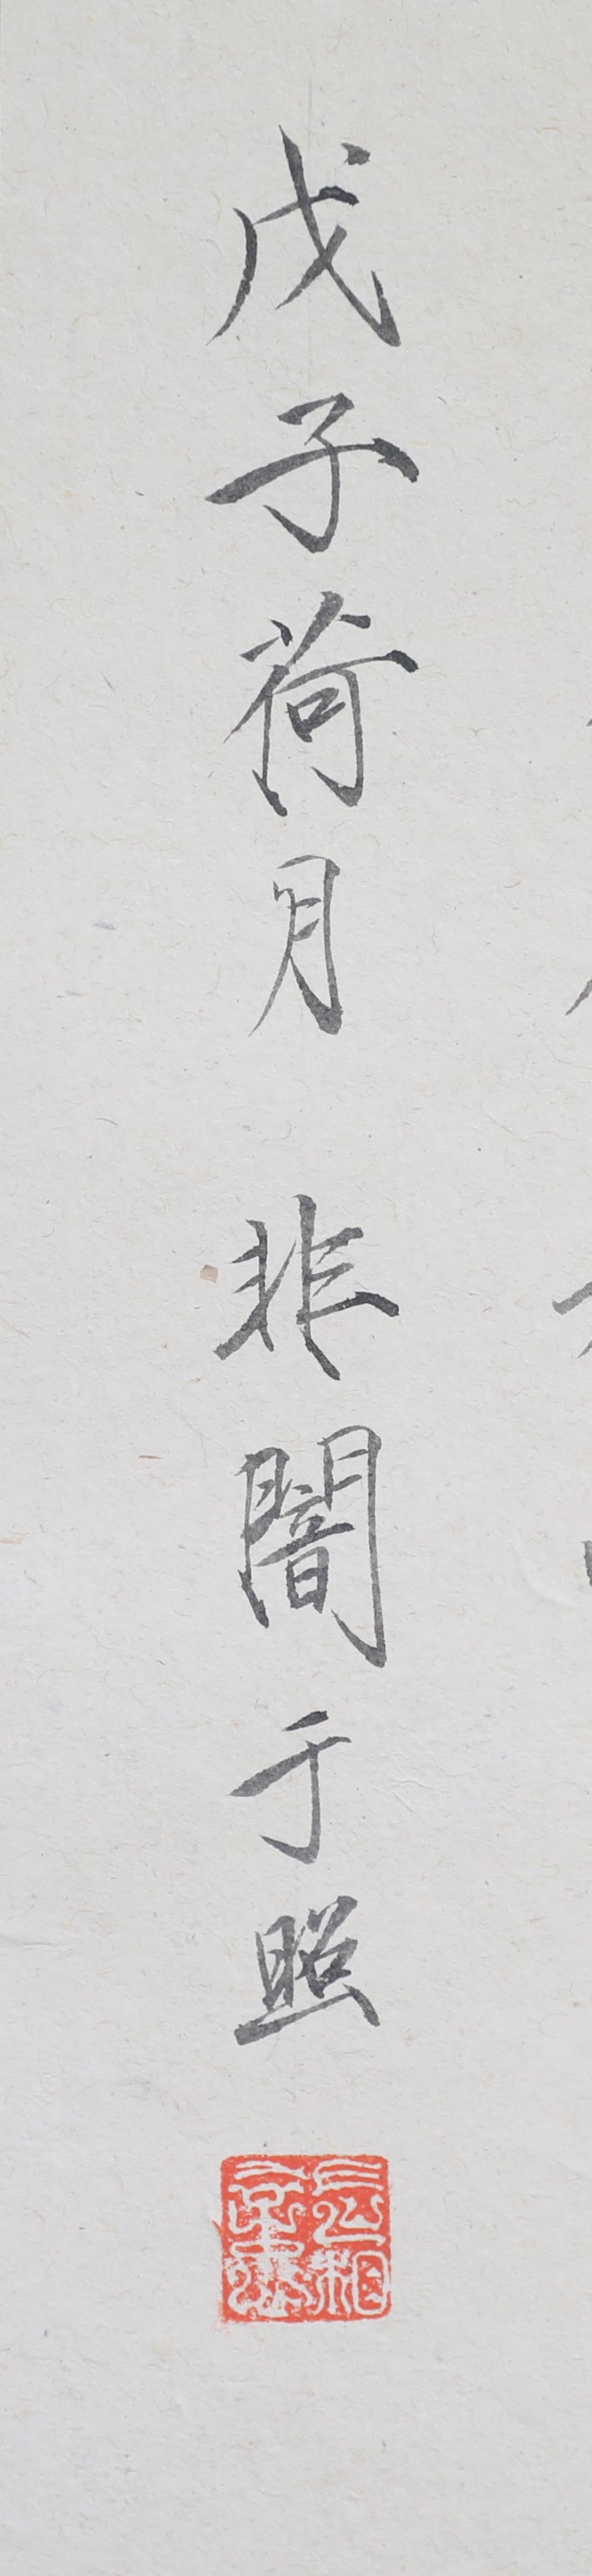 戊子荷月 非闇于照